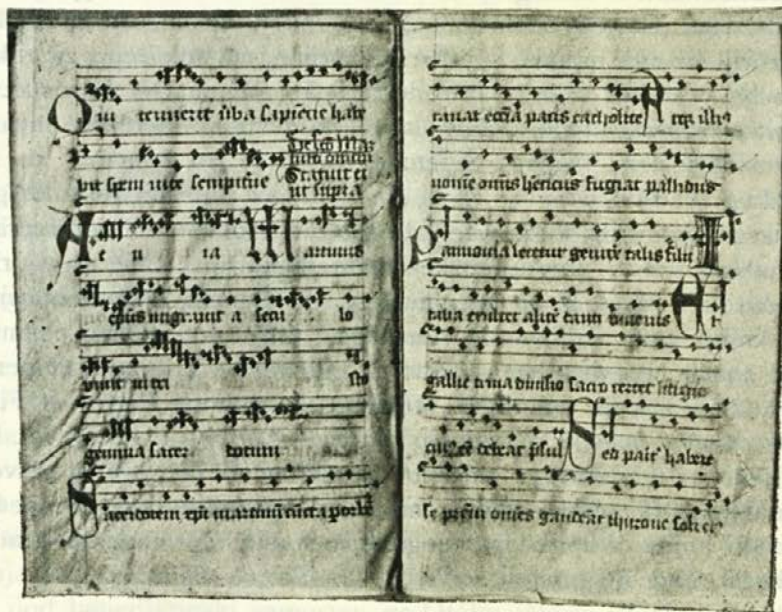 Qui tenuerit v̄ba sapiētie habe
bit spem vite sempit̄ne De sc̄o Mar
Statuit ei
ut supra
Ale u ia Martinus
ep̄us migravit a secu lo
vivit in xpo
gemma sacer dotum
Sacerdotem xp̄i martinū cūcta p orbē
canat eccīa pacis catholice Atq; illiꝰ
nomē om̄is h̄eticus fugiat pallidus
Pannonia letetur genit̄x talis filii I
talia exultet alit̄x tanti iuvenis Et
gallie trina divisio sacro certet litigio
cuiꝰ eē debeat p̄sul Sed pait̄ habere
se pr̄em om̄es gaudeāt thurone soli ei